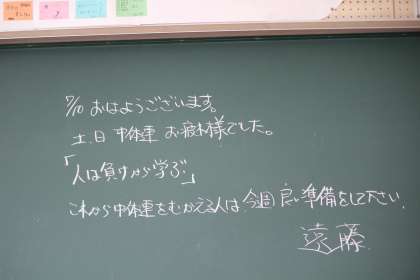 7/10 おはようございます。
土、日 中体連 お疲れ様でした。
「人は負けから学ぶ」
これから中体連をむかえる人は、今週 良い準備をして下さい。
遠藤